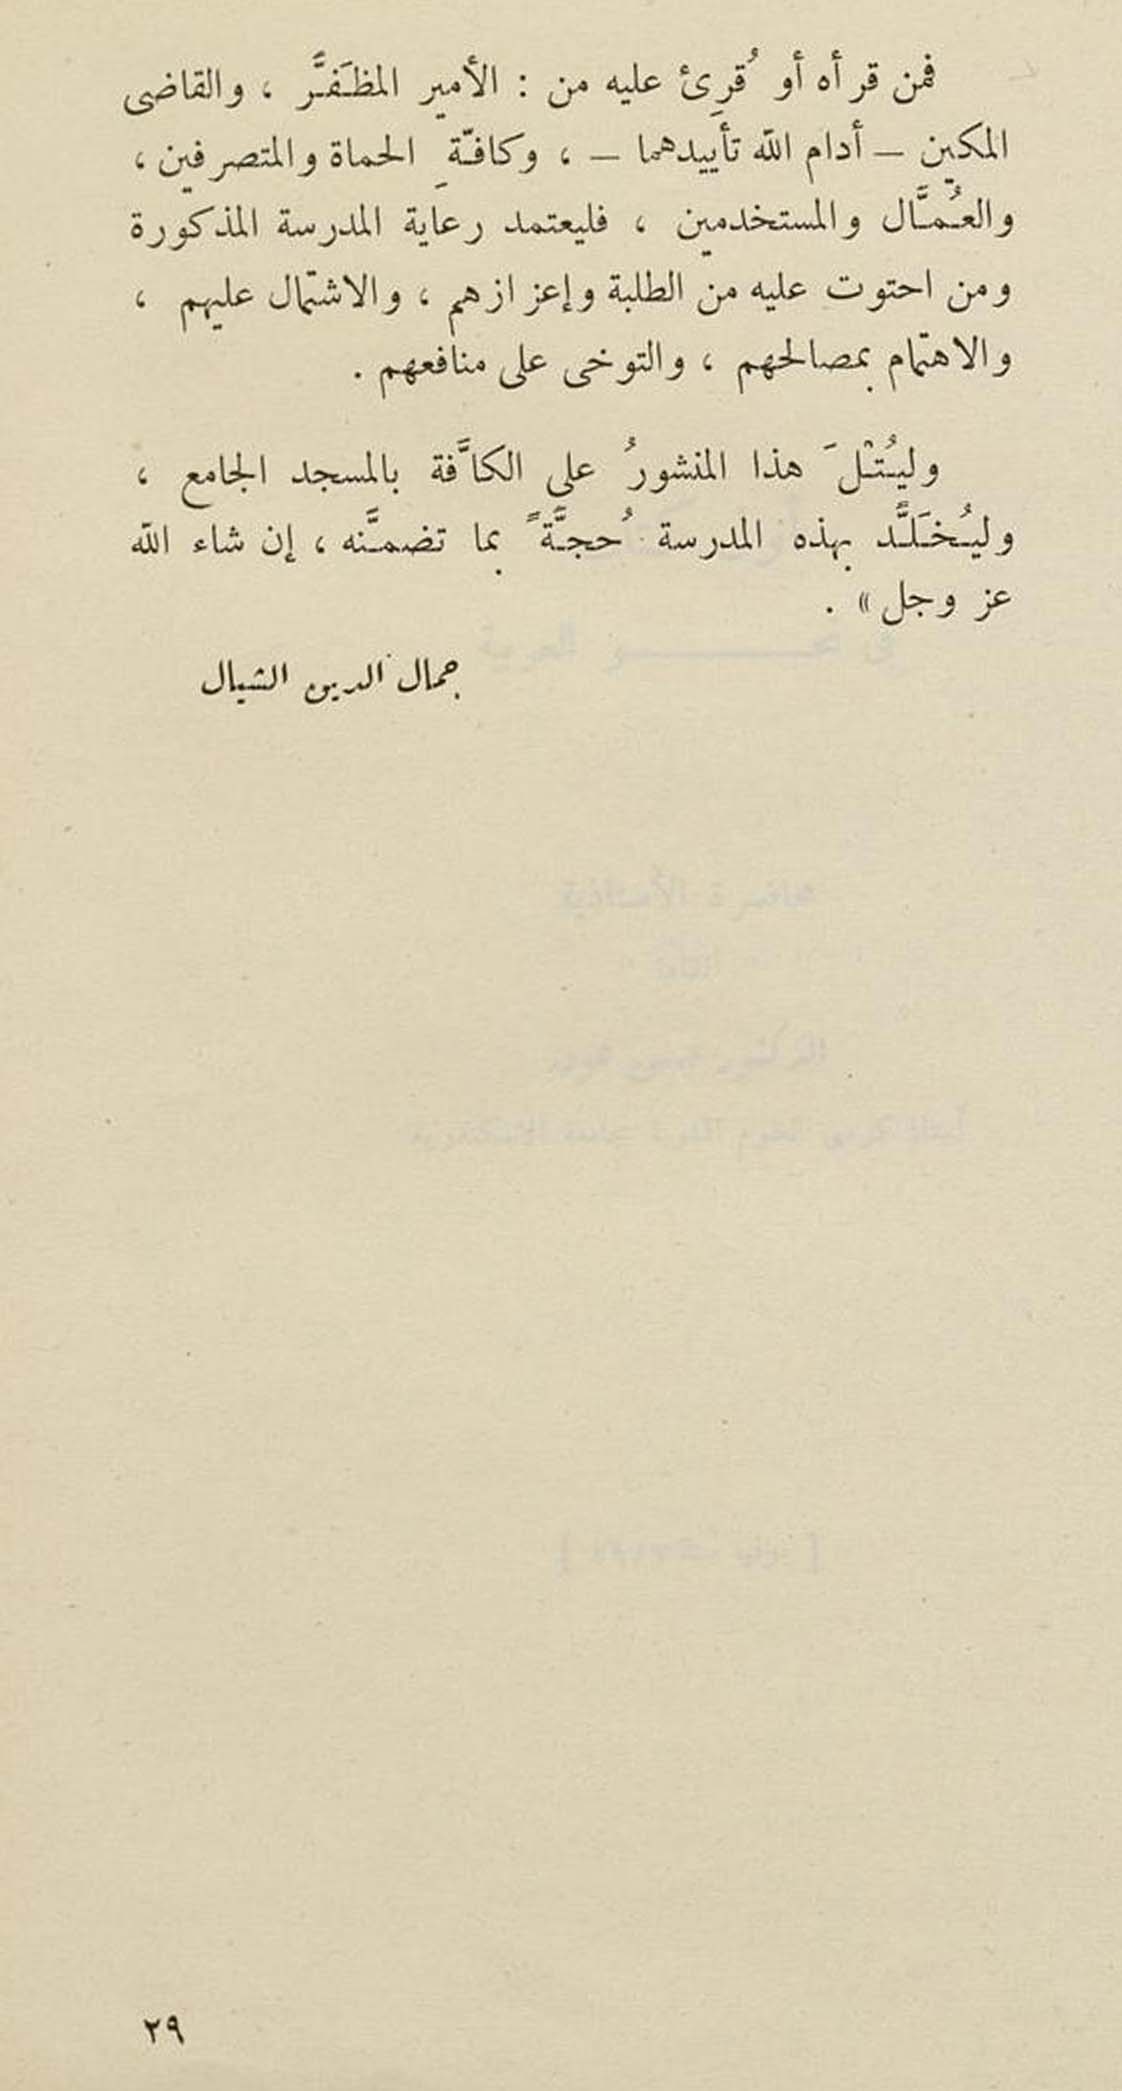 فمن قرأه أو قُرِئ عليه من : الأمير المظَفَّر ، والقاضى
المكين – أدام الله تأييدهما – ، وكافّةِ الحماة والمتصرفين ،
والعُمَّال والمستخدمين ، فليعتمد رعاية المدرسة المذكورة
ومن احتوت عليه من الطلبة وإعزازهم ، والاشتمال عليهم ،
والاهتمام بمصالحهم ، والتوخى على منافعهم .
وليُتْلَ هذا المنشورُ على الكافَّة بالمسجد الجامع ،
وليُخَلَّد بهذه المدرسة حُجَّةً بما تضمَّنه ، إن شاء الله
عز وجل » .
جمال الدين الشيال
٢٩